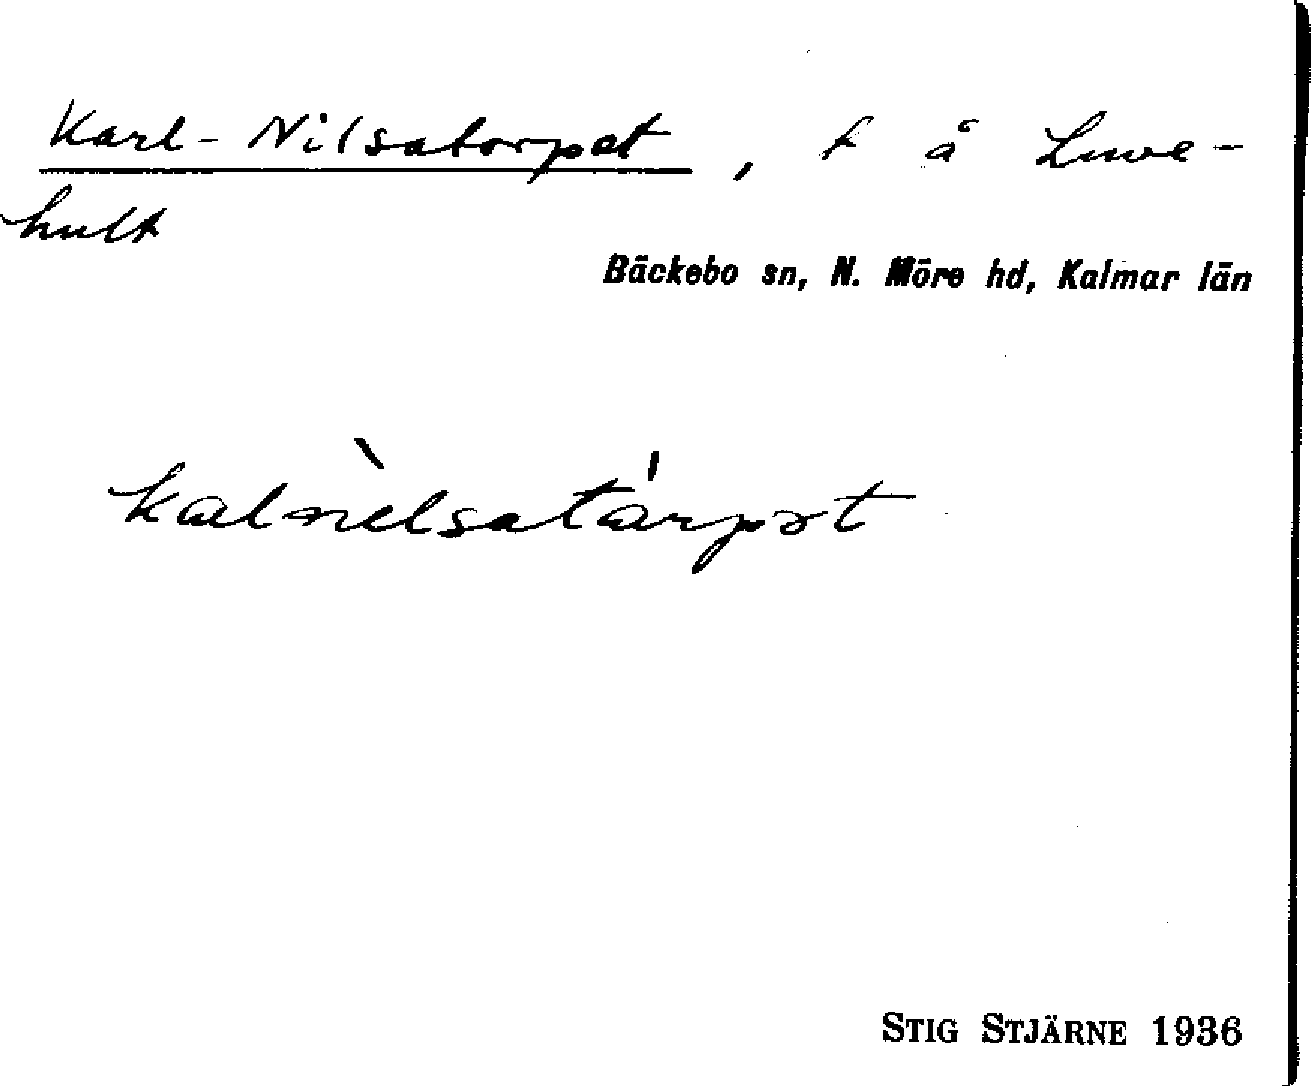 Karl-Nilsatorpet, t å Luve-
hult
Bäckebo sn, N. Möre hd, Kalmar län
kalnelsatårpət
STIG STJÄRNE 1936